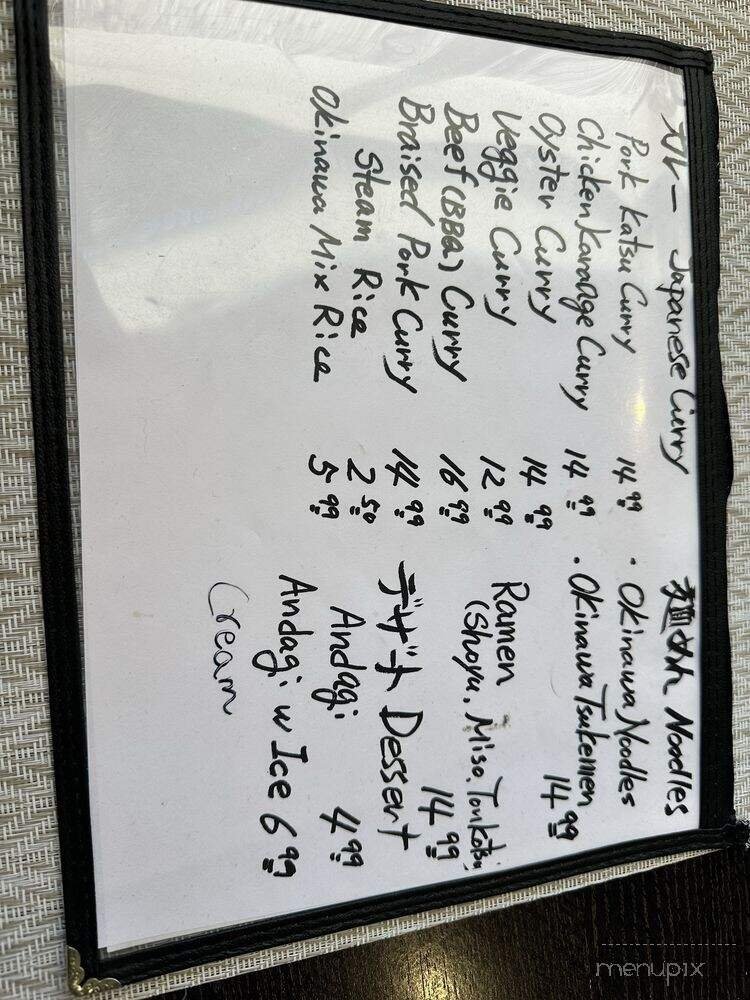 カレー Japanese Curry
Pork Katsu Curry 14.99
Chicken Karaage Curry 14.99
Oyster Curry 14.99
Veggie Curry 12.99
Beef (BBQ) Curry 16.99
Braised Pork Curry 14.99
Steam Rice 2.50
Okinawa Mix Rice 5.99
麺 めん Noodles
. Okinawa Noodles
. Okinawa Tsukemen
14.99
Ramen
(Shoyu, Miso, Tonkotsu)
14.99
デザート Dessert
Andagi 4.99
Andagi w Ice 6.99
Cream
menupix